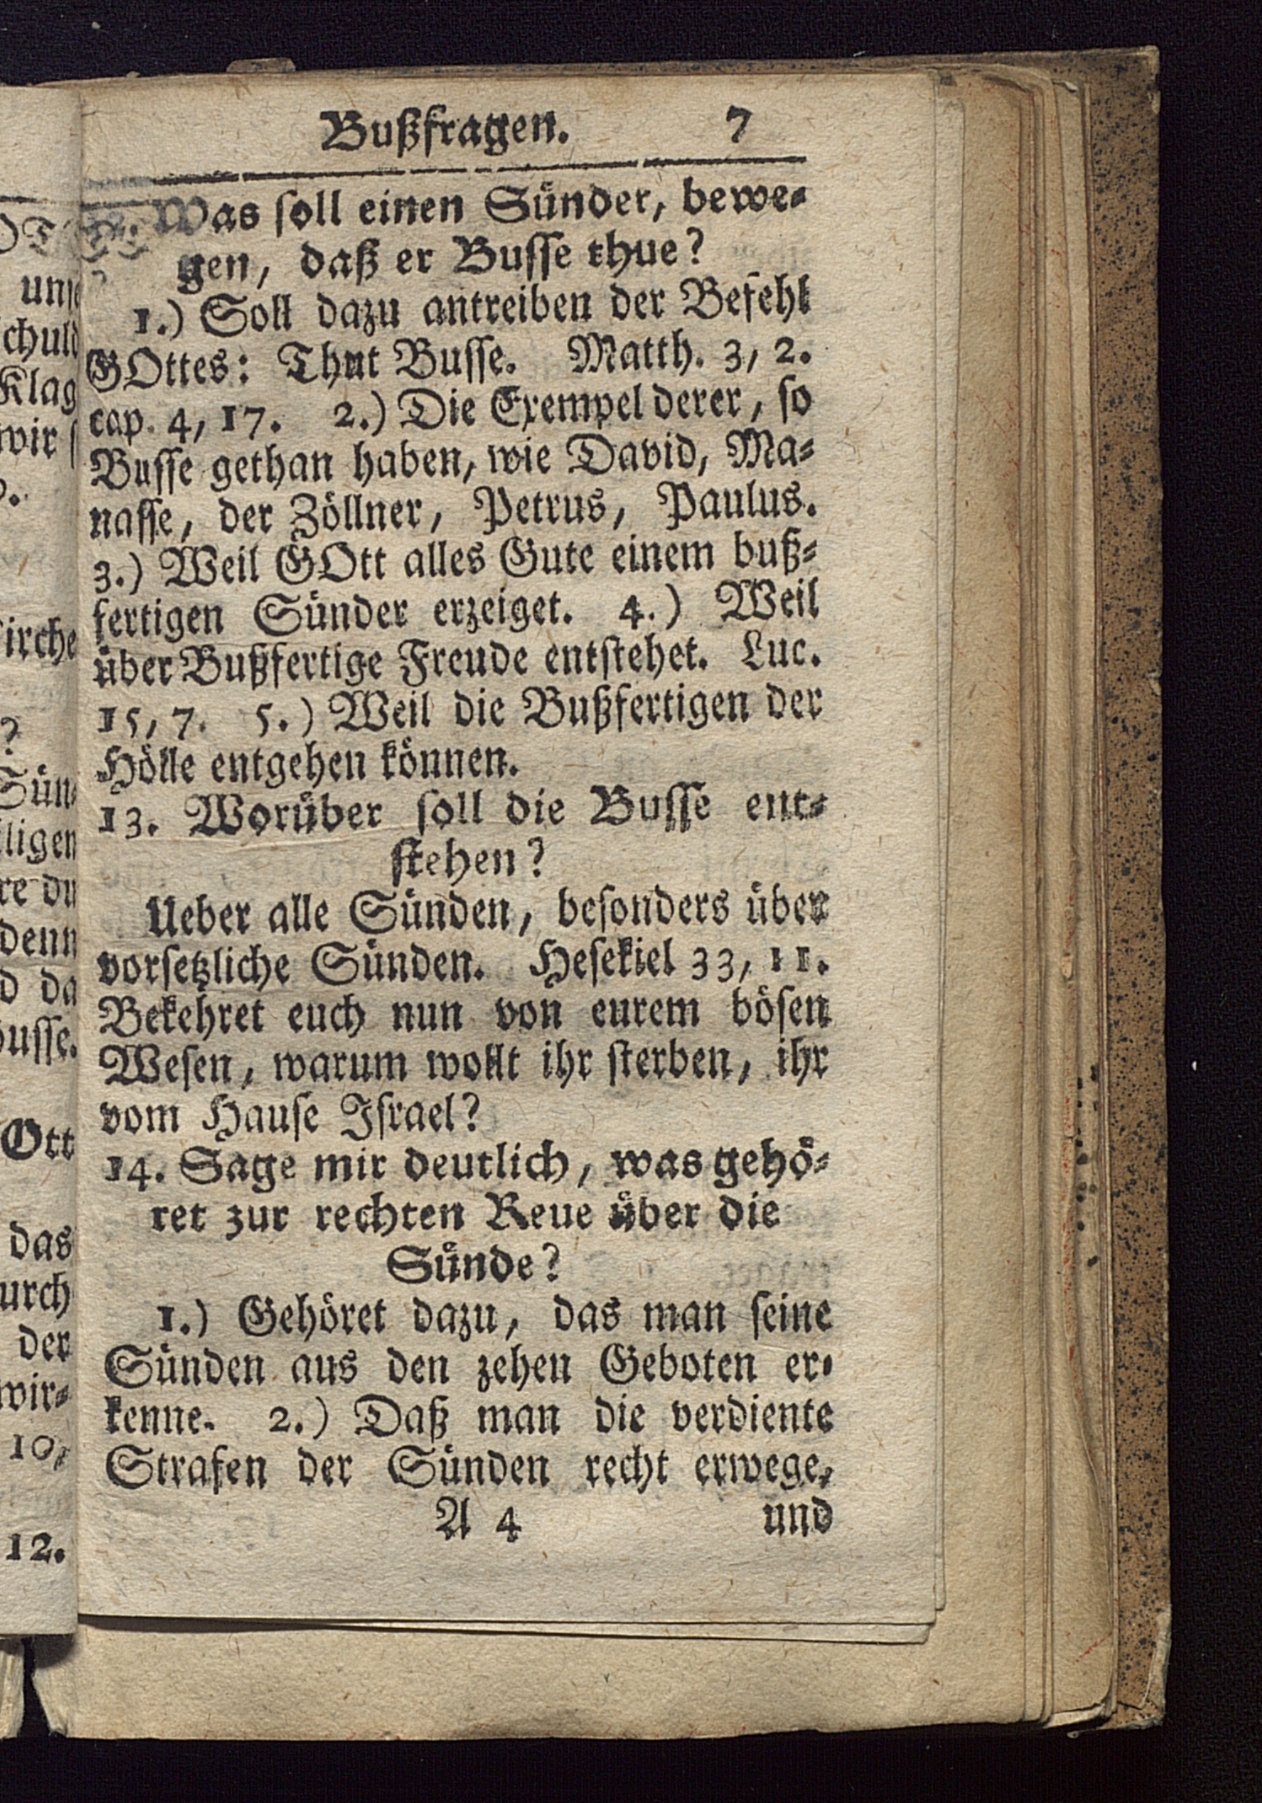 Bußfragen. 7
Was soll einen Sünder, bewe-
gen, daß er Busse thue?
1.) Soll dazu antreiben der Befehl
GOttes: Thut Busse. Matth. 3, 2.
cap. 4, 17. 2.) Die Exempel derer, so
Busse gethan haben, wie David, Ma-
nasse, der Zöllner, Petrus, Paulus.
3.) Weil GOtt alles Gute einem buß-
fertigen Sünder erzeiget. 4.) Weil
über Bußfertige Freude entstehet. Luc.
15, 7. 5.) Weil die Bußfertigen der
Hölle entgehen können.
13. Worüber soll die Busse ent-
stehen?
Ueber alle Sünden, besonders über
vorsetzliche Sünden. Hesekiel 33, 11.
Bekehret euch nun von eurem bösen
Wesen, warum wollt ihr sterben, ihr
vom Hause Israel?
14. Sage mir deutlich, was gehö-
ret zur rechten Reue über die
Sünde?
1.) Gehöret dazu, das man seine
Sünden aus den zehen Geboten er-
kenne. 2.) Daß man die verdiente
Strafen der Sünden recht erwege,
A 4 und